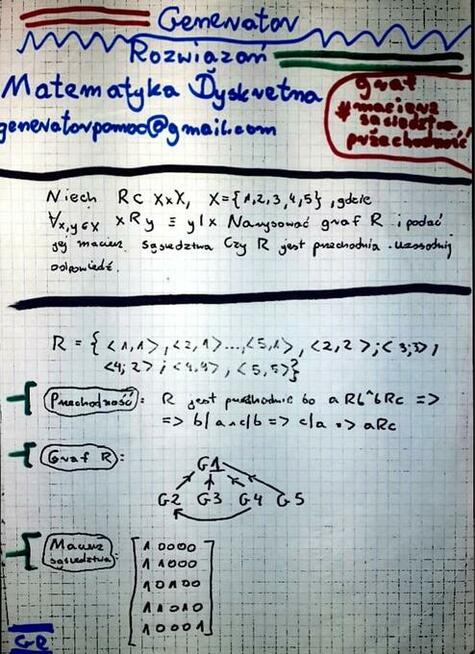 Generator
Rozwiązań
Matematyka Dyskretna
generatorpomoc@gmail.com
graf
#macierz
sąsiedztwa
przechodniość
Niech R⊂ X×X, X={1,2,3,4,5}, gdzie
∀x,y∈X xRy ≡ y|x Narysować graf R i podać
jej macierz sąsiedztwa Czy R jest przechodnia. Uzasadnij
odpowiedź.
R = { <1,1>, <2,1>...,<5,1>, <2,2>;<3;3>,
<4;2>;<4,4>, <5,5>}
Przechodniość: R jest przechodnie bo aRb^bRc =>
=> b|a ∧ c|b => c|a => aRc
Graf R:
G1
G2 G3 G4 G5
Macierz
sąsiedztwa:
1 0 0 0 0
1 1 0 0 0
1 0 1 0 0
1 1 0 1 0
1 0 0 0 1
GR